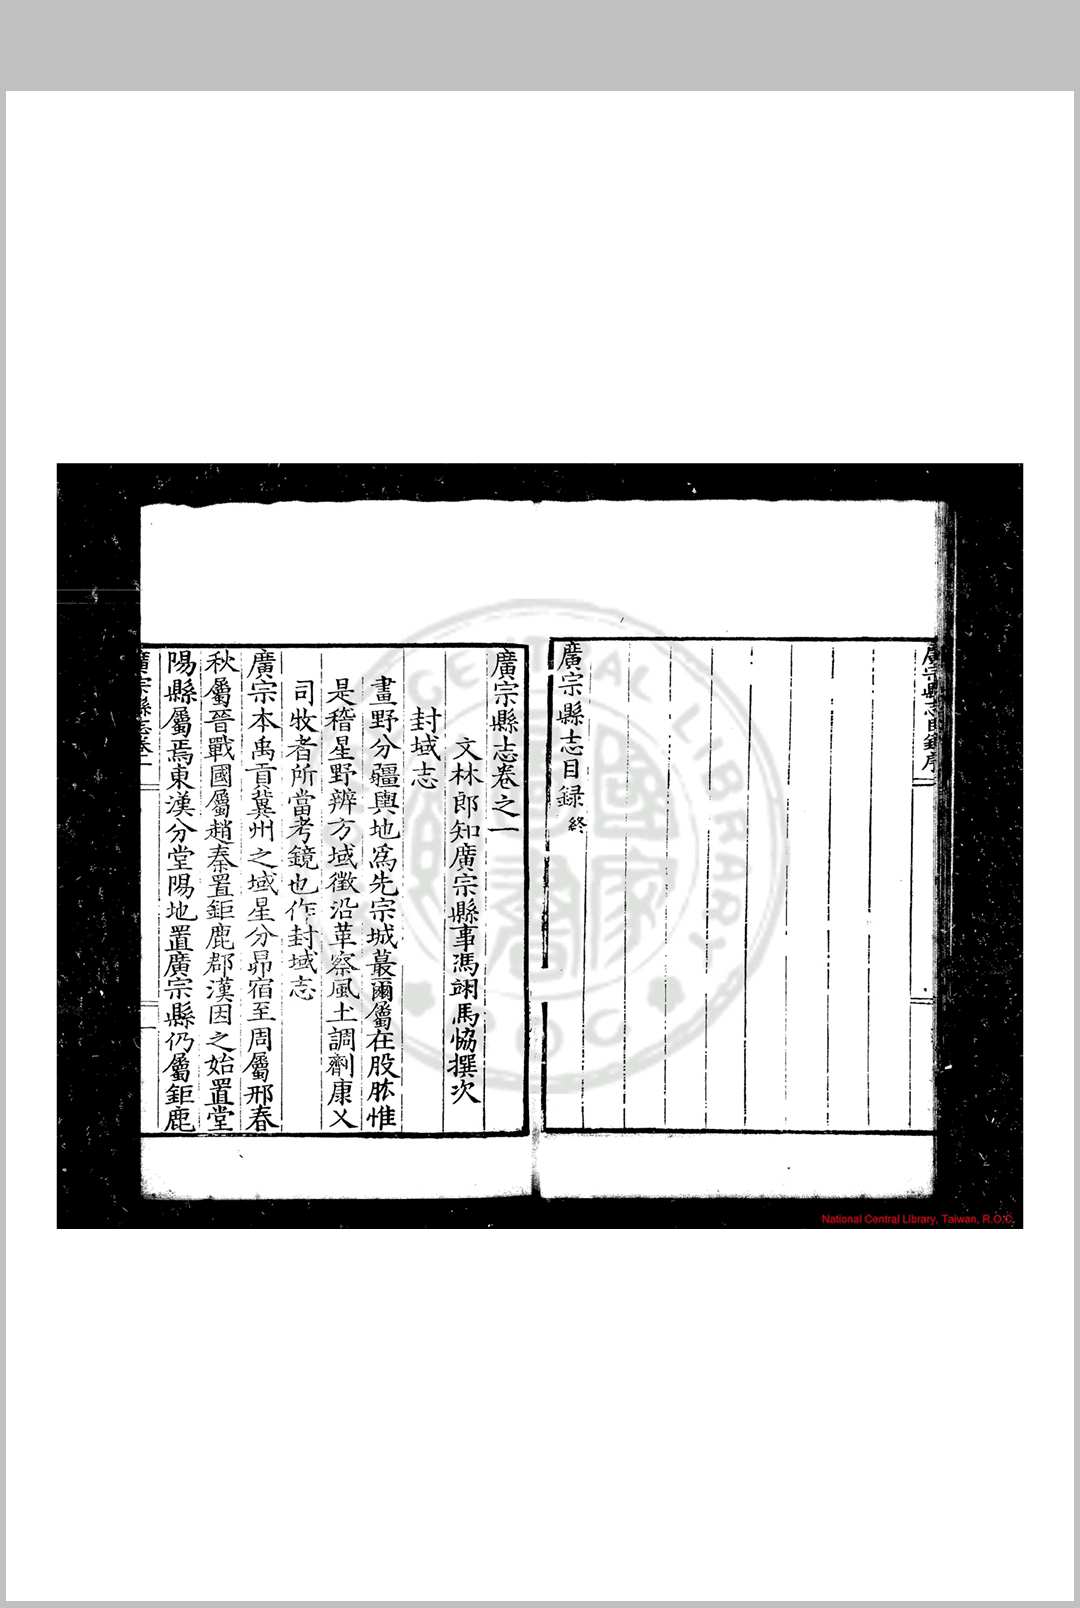 廣宗縣志目錄終
廣宗縣志卷之一
文林郎知廣宗縣事馮翊馬恊撰次
封域志
畫野分疆輿地爲先宗城蕞爾屬在股肱惟
是稽星野辨方域徵沿革察風土調劑康乂
司牧者所當考鏡也作封域志
廣宗本禹貢冀州之域星分昴宿至周屬邢春
秋屬晉戰國屬趙秦置鉅鹿郡漢因之始置堂
陽縣屬焉東漢分堂陽地置廣宗縣仍屬鉅鹿
廣宗縣志卷一
National Central Library, Taiwan, R.O.C.